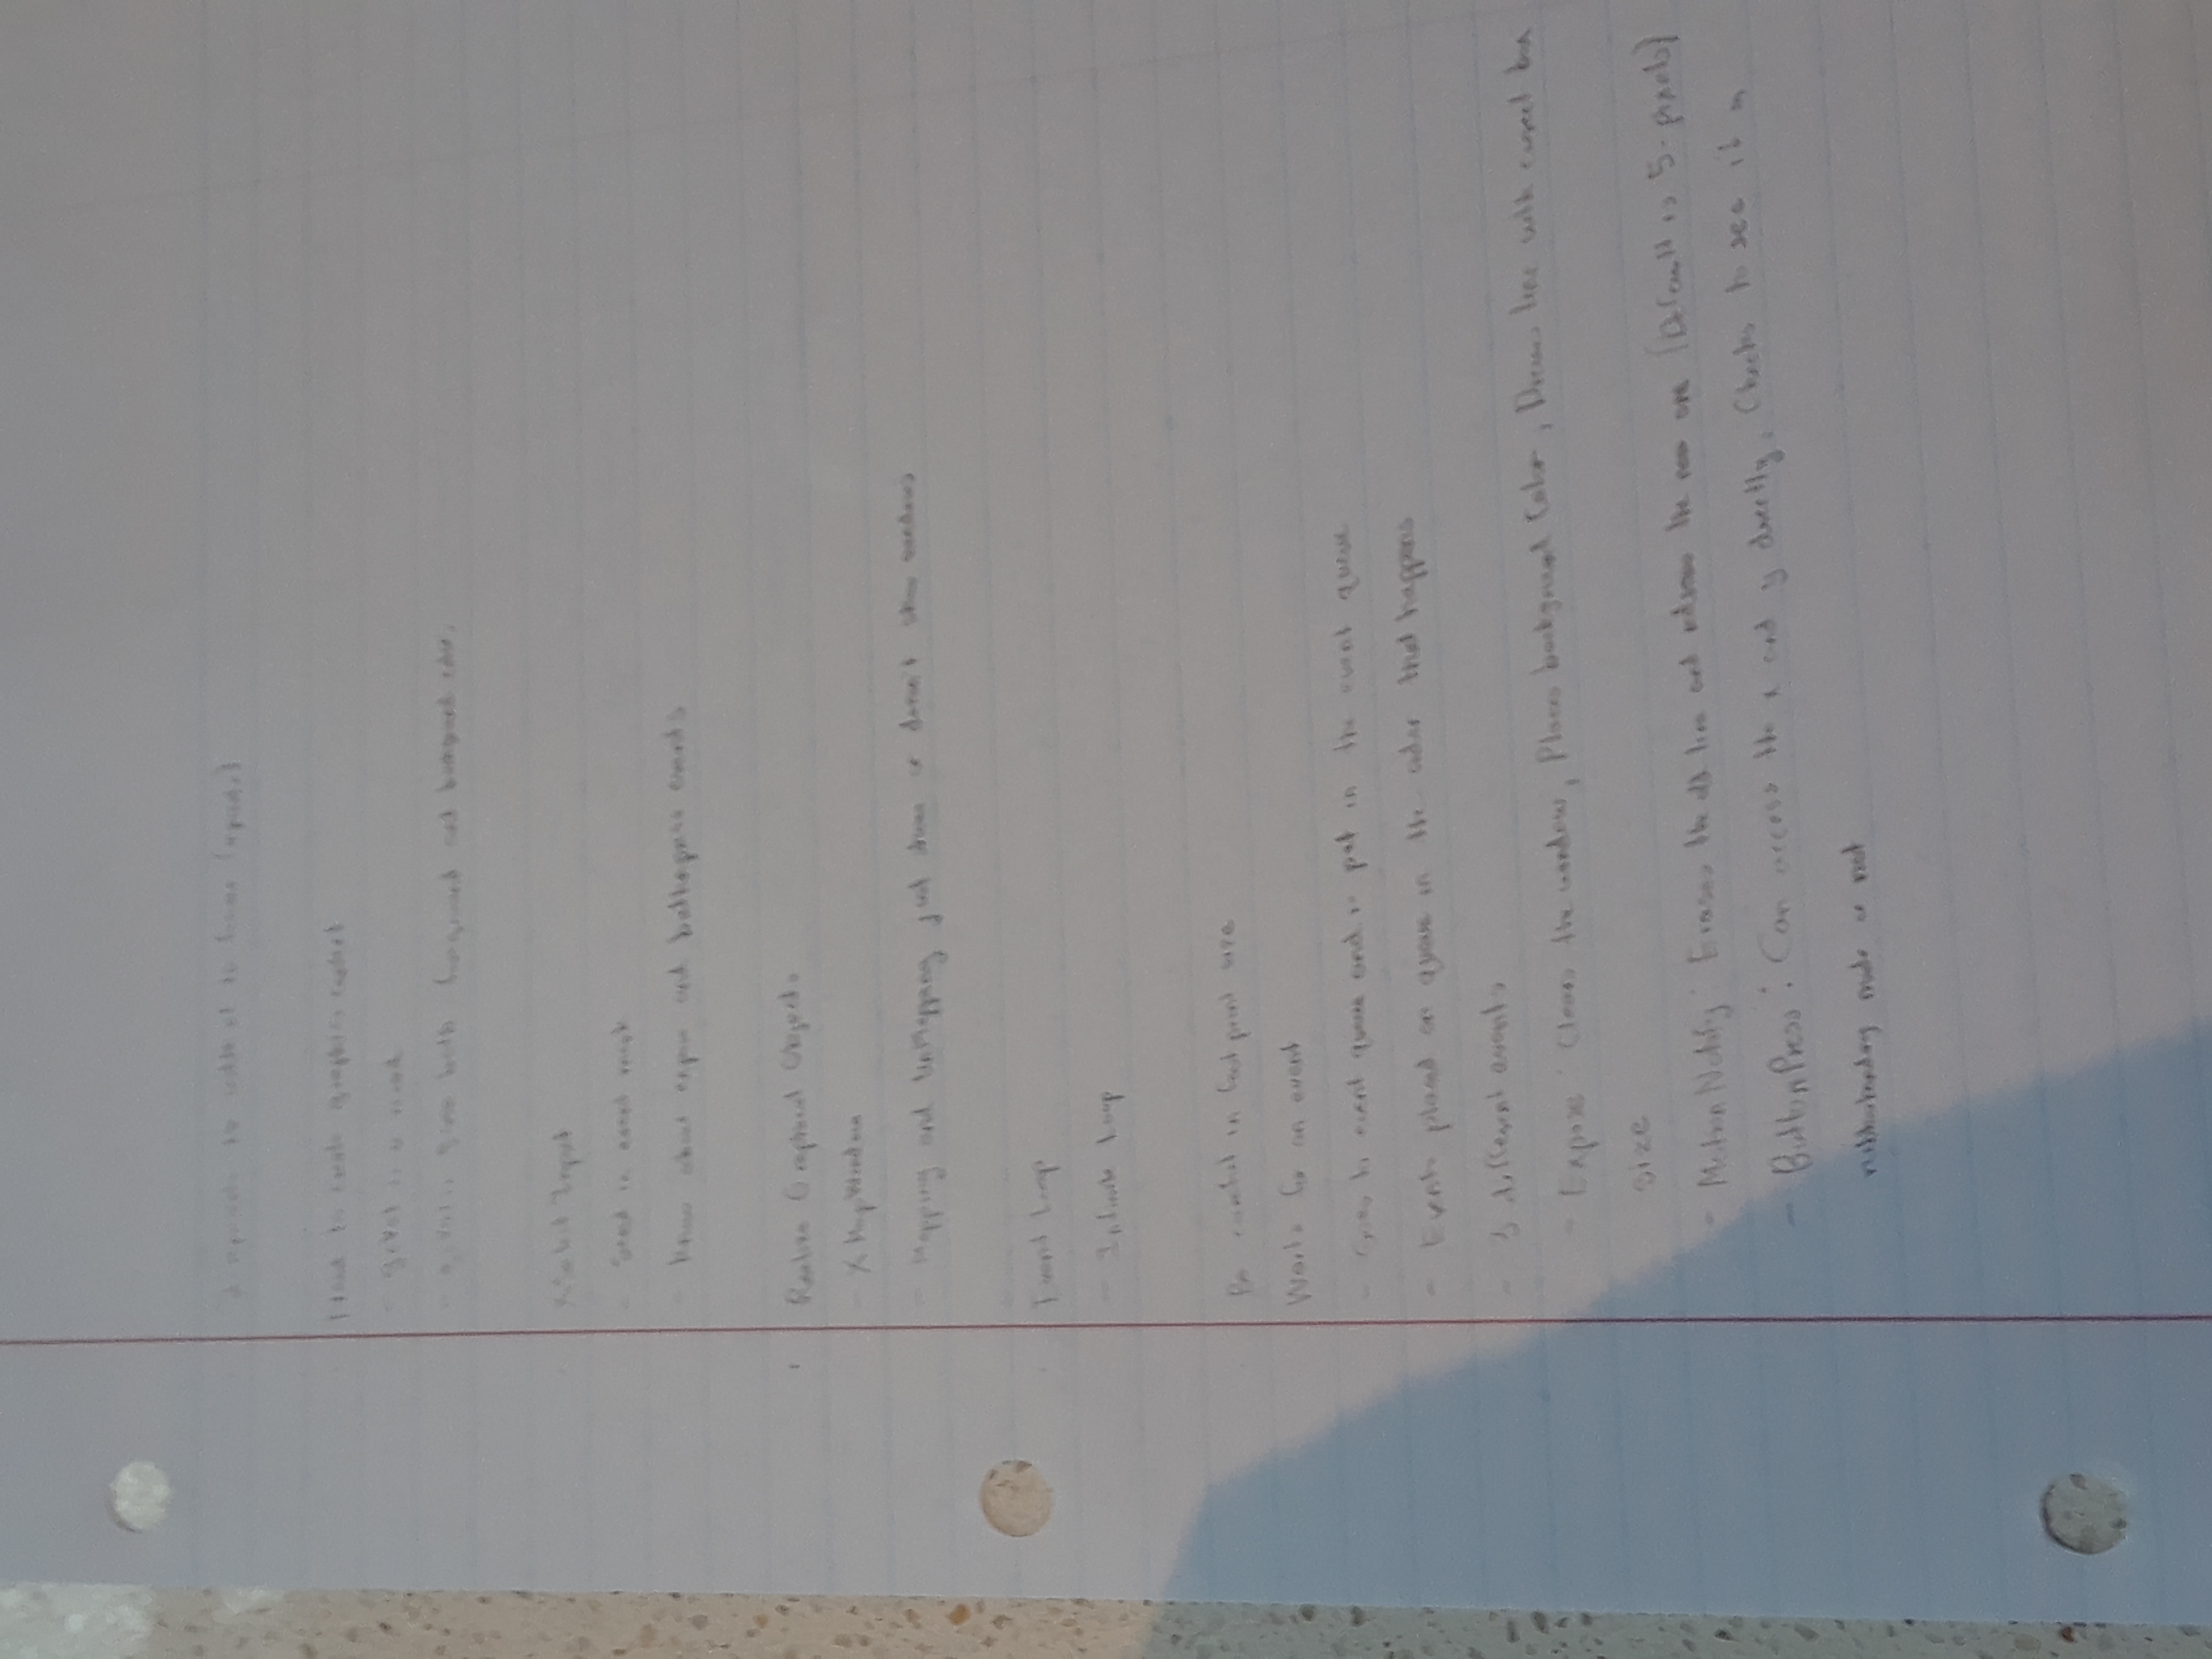 to create graphics context
- is a
- both foreground and background color.
XSelect Input
- Send in event mask
- Know about expose and buttonpress events
Realize Graphical Objects
- XMapWindow
- Mapping and UnMapping just shows or doesn't show windows
Event Loop
- Infinite Loop
Be careful in foot print size
Waits for an event
- Goes to event queue and is put in the event queue
- Events placed on queue in the order that happens
- 3 different events
- Expose: Clears the window, Places background Color, Draws line with current box
size
- MotionNotify: Erases the old line and redraws the new one (Default is 5-pixels)
- ButtonPress: Can access the x and y directly. Checks to see if in
rubberbanding mode or not